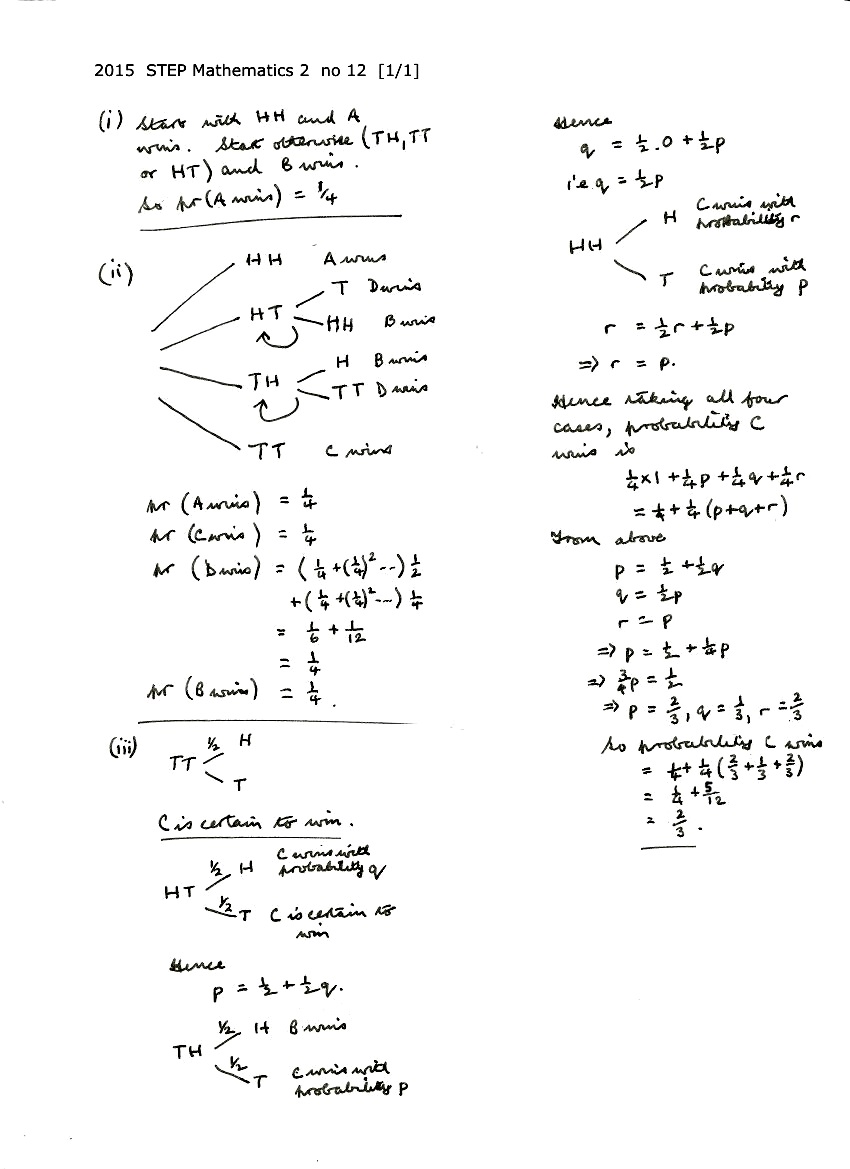 2015 STEP Mathematics 2 no 12 [1/1]
(i) Start with HH and A
wins. Start otherwise (TH, TT
or HT) and B wins.
So pr(A wins) = 1/4
(ii)
HH A wins
T D wins
HT
HH B wins
H B wins
TH
TT D wins
TT C wins
pr (A wins) = 1/4
pr (C wins) = 1/4
pr (D wins) = (1/4 + (1/4)² --) 1/2
+ (1/4 + (1/4)² ---) 1/4
= 1/6 + 1/12
= 1/4
pr (B wins) = 1/4.
(iii)
1/2 H
TT
T
C is certain to win.
1/2 H C wins with probability q
HT
1/2 T C is certain to
win
Hence
p = 1/2 + 1/2 q.
1/2 H B wins
TH
1/2 T C wins with
probability p
Hence
q = 1/2 . 0 + 1/2 p
i.e q = 1/2 p
H C wins with
probability r
HH
T C wins with
probability p
r = 1/2 r + 1/2 p
=> r = p.
Hence taking all four
cases, probability C
wins is
1/4 × 1 + 1/4 p + 1/4 q + 1/4 r
= 1/4 + 1/4 (p+q+r)
From above
p = 1/2 + 1/2 q
q = 1/2 p
r = p
=> p = 1/2 + 1/4 p
=> 3/4 p = 1/2
=> p = 2/3, q = 1/3, r = 2/3
So probability C wins
= 1/4 + 1/4 (2/3 + 1/3 + 2/3)
= 1/4 + 5/12
= 2/3.